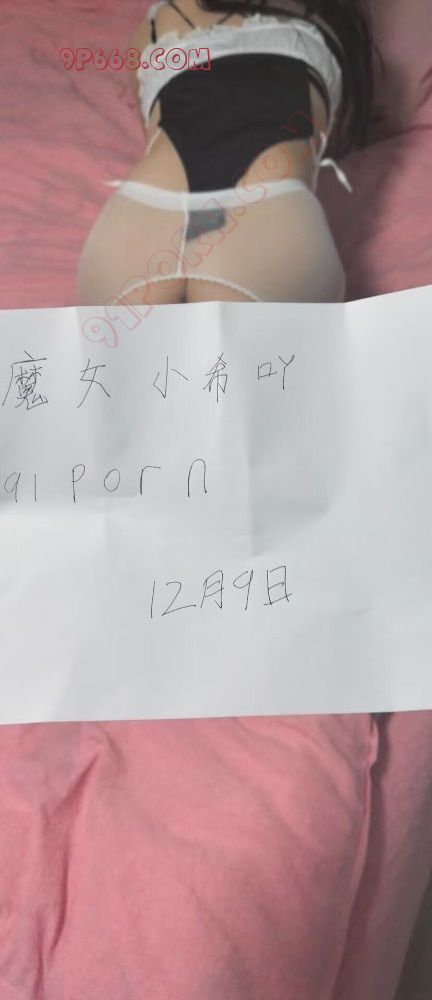 9P668.COM
91PORN.COM
魔女小希吖
91 porn
12月9日